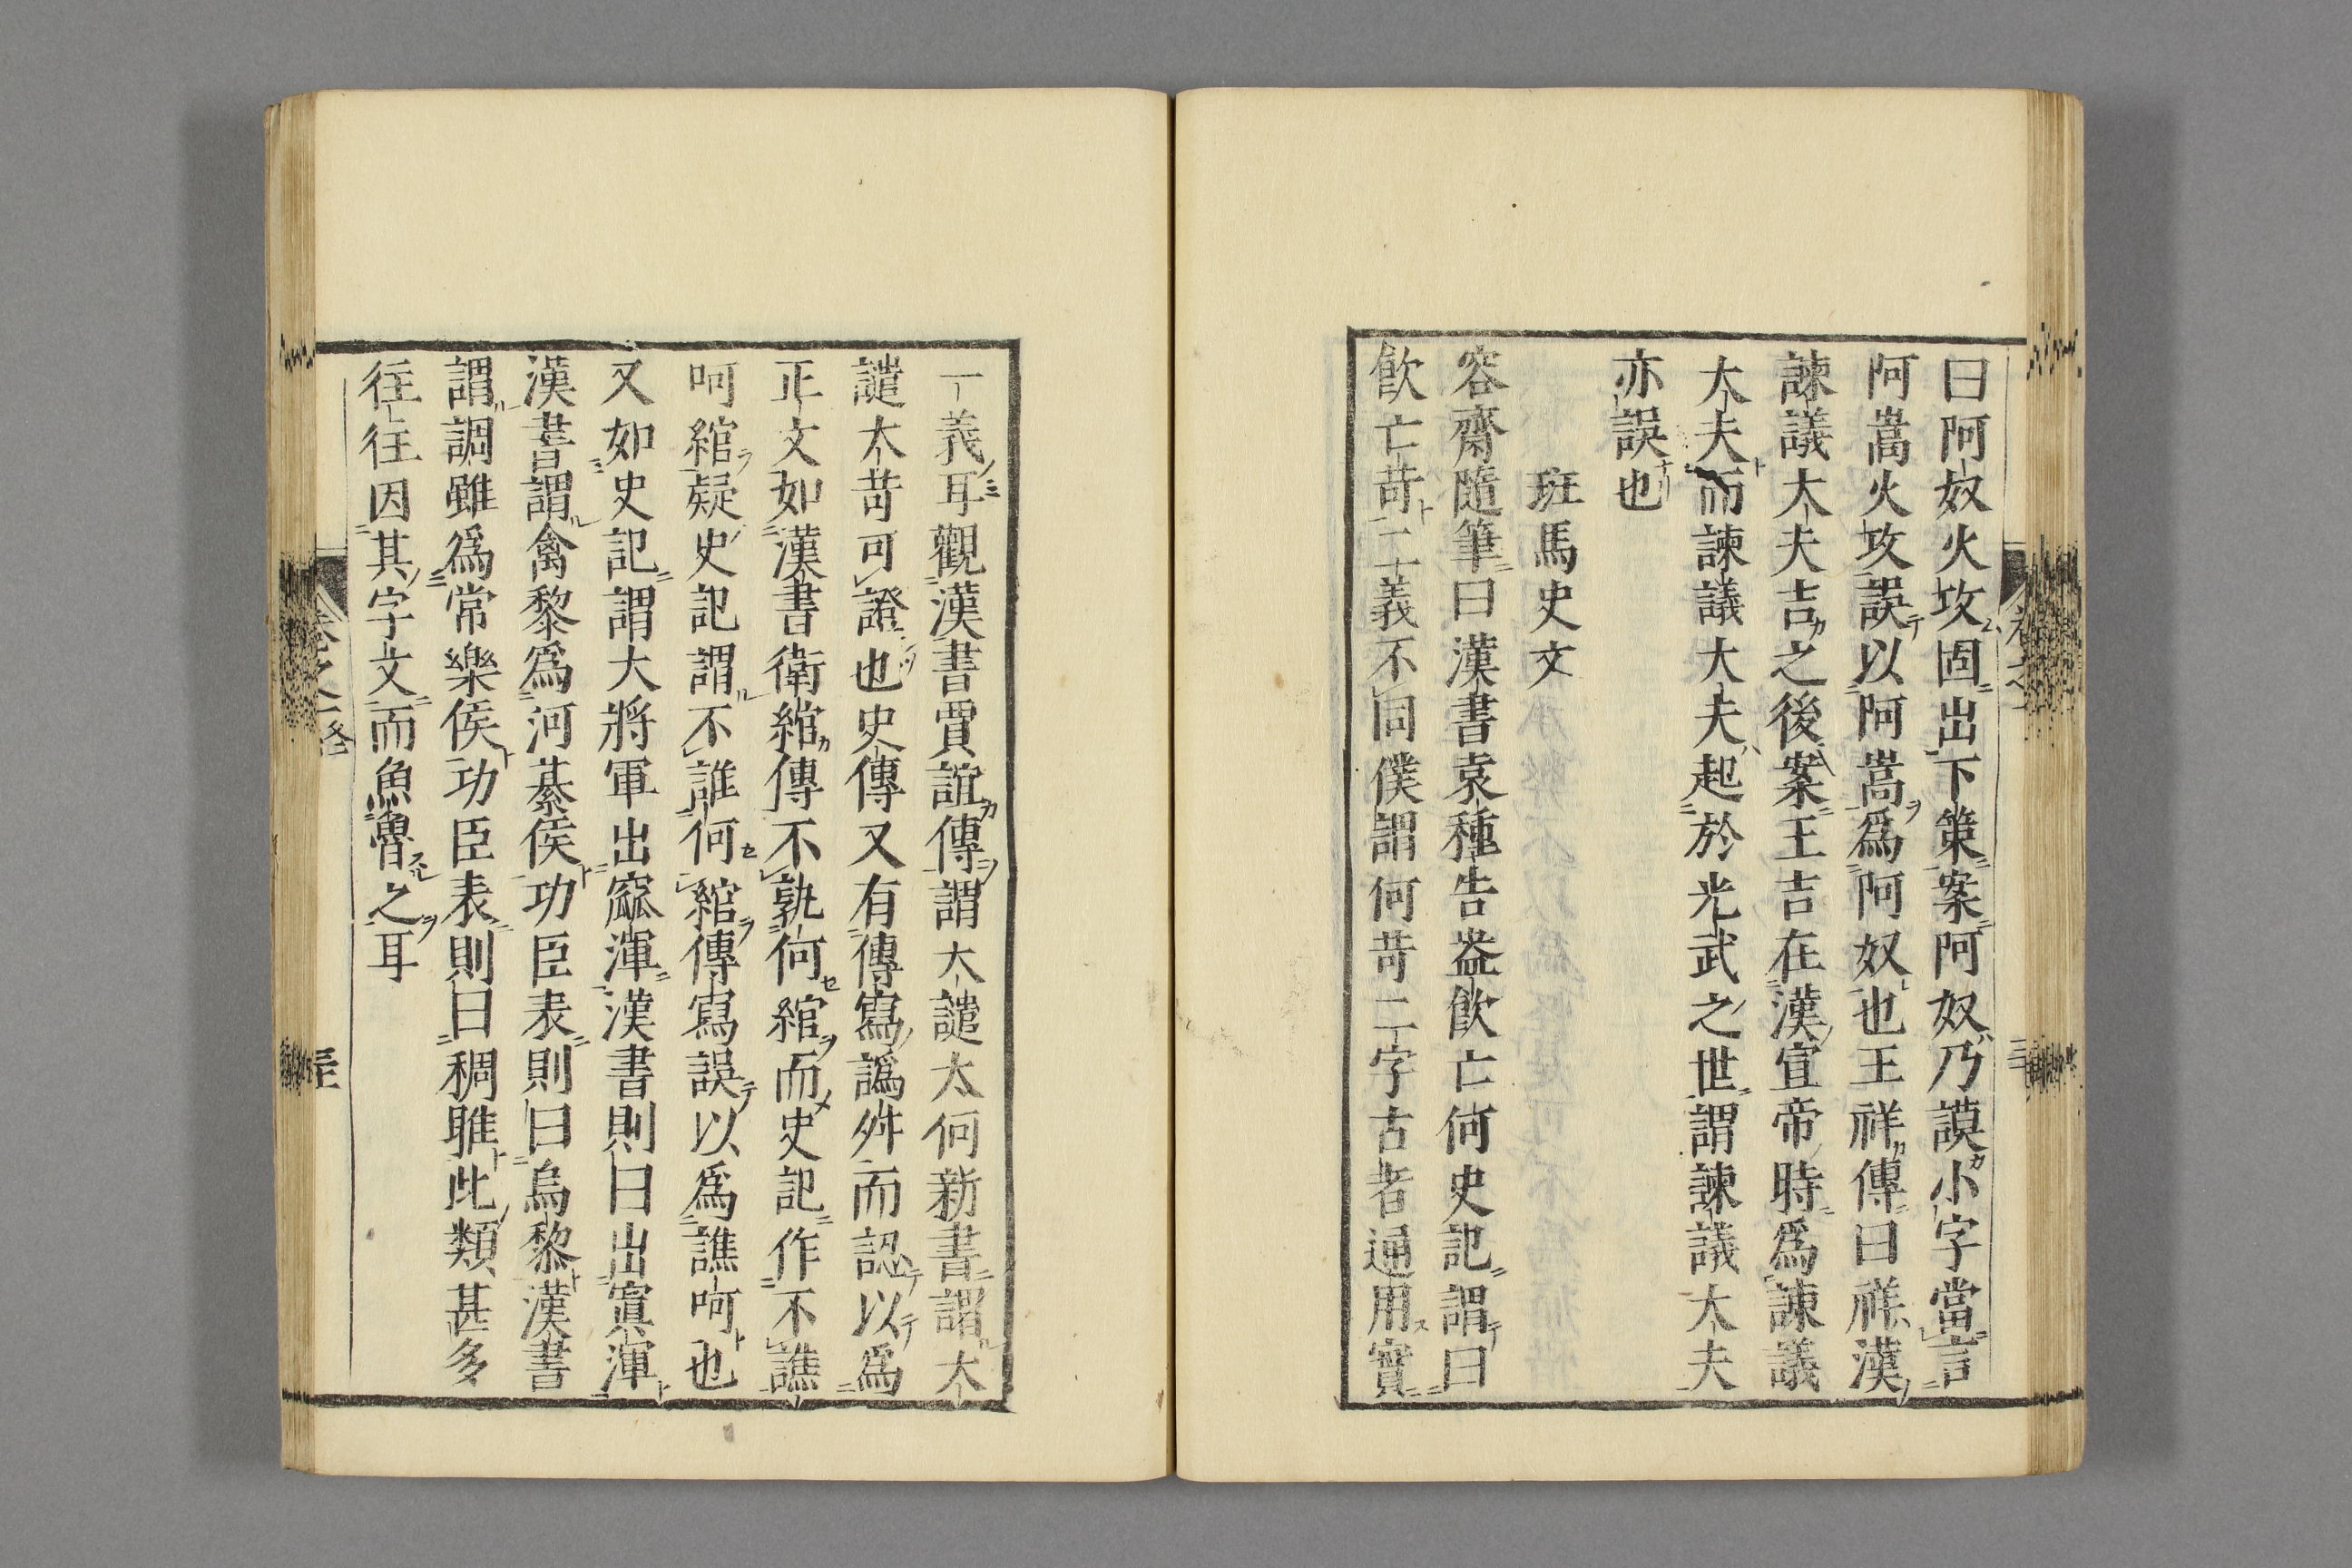 曰阿奴火攻固出下策案阿奴乃謨小字當言
阿嵩火攻誤以阿嵩爲阿奴也王祥傳曰祥漢
諫議大夫吉之後案王吉在漢宣帝時爲諫議
大夫而諫議大夫起於光武之世謂諫議大夫
亦誤也
班馬史文
容齋隨筆曰漢書袁種告盎飲亡何史記謂曰
飲亡苛二義不同僕謂何苛二字古者通用實
一義耳觀漢書賈誼傳謂大譴大何新書謂大
譴大苛可證也史傳又有傳寫譌舛而認以爲
正文如漢書衛綰傳不孰何綰而史記作不譙
呵綰疑史記謂不誰何綰傳寫誤以爲譙呵也
又如史記謂大將軍出窳渾漢書則曰出寘渾
漢書謂禽黎爲河綦侯功臣表則曰烏黎漢書
謂調雖爲常樂侯功臣表則曰稠雎此類甚多
往往因其字文而魚魯之耳